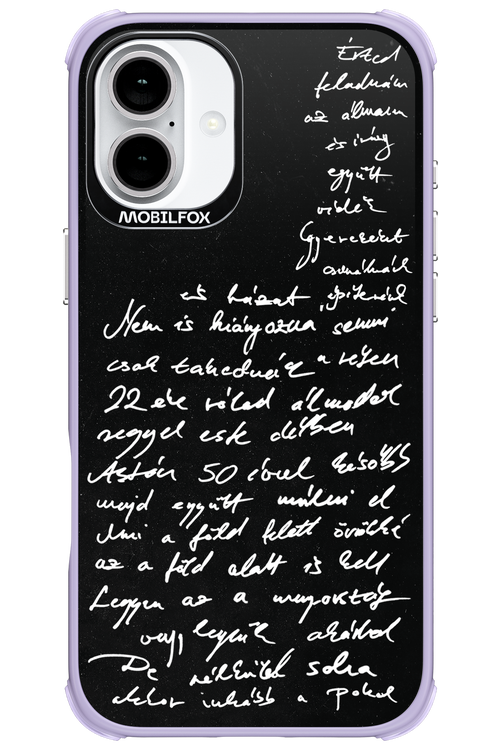 MOBILFOX
Érted
feladnám
az álmaim
és írng
együtt
vidék
Gyerekeket
csinálnák
és házat építenék
Nem is hiányozna semmi
csak takednák a résen
22 éve rólad álmodok
reggel este délben
Aztán 50 évvel később
majd együtt múlni el
Ami a föld felett örökké
az a föld alatt is kell
Legyen az a mennyország
vagy legyünk akárhol
De nélküled soha
akkor inkább a pokol